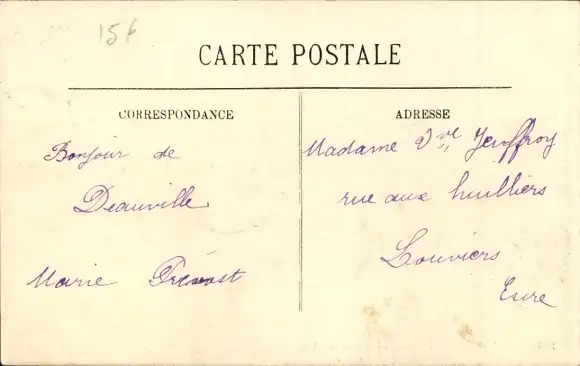 15f
CARTE POSTALE
CORRESPONDANCE
Bonjour de
Deauville
Marie Prévost
ADRESSE
Madame Vve Jeuffroy
rue aux huilliers
Louviers
Eure